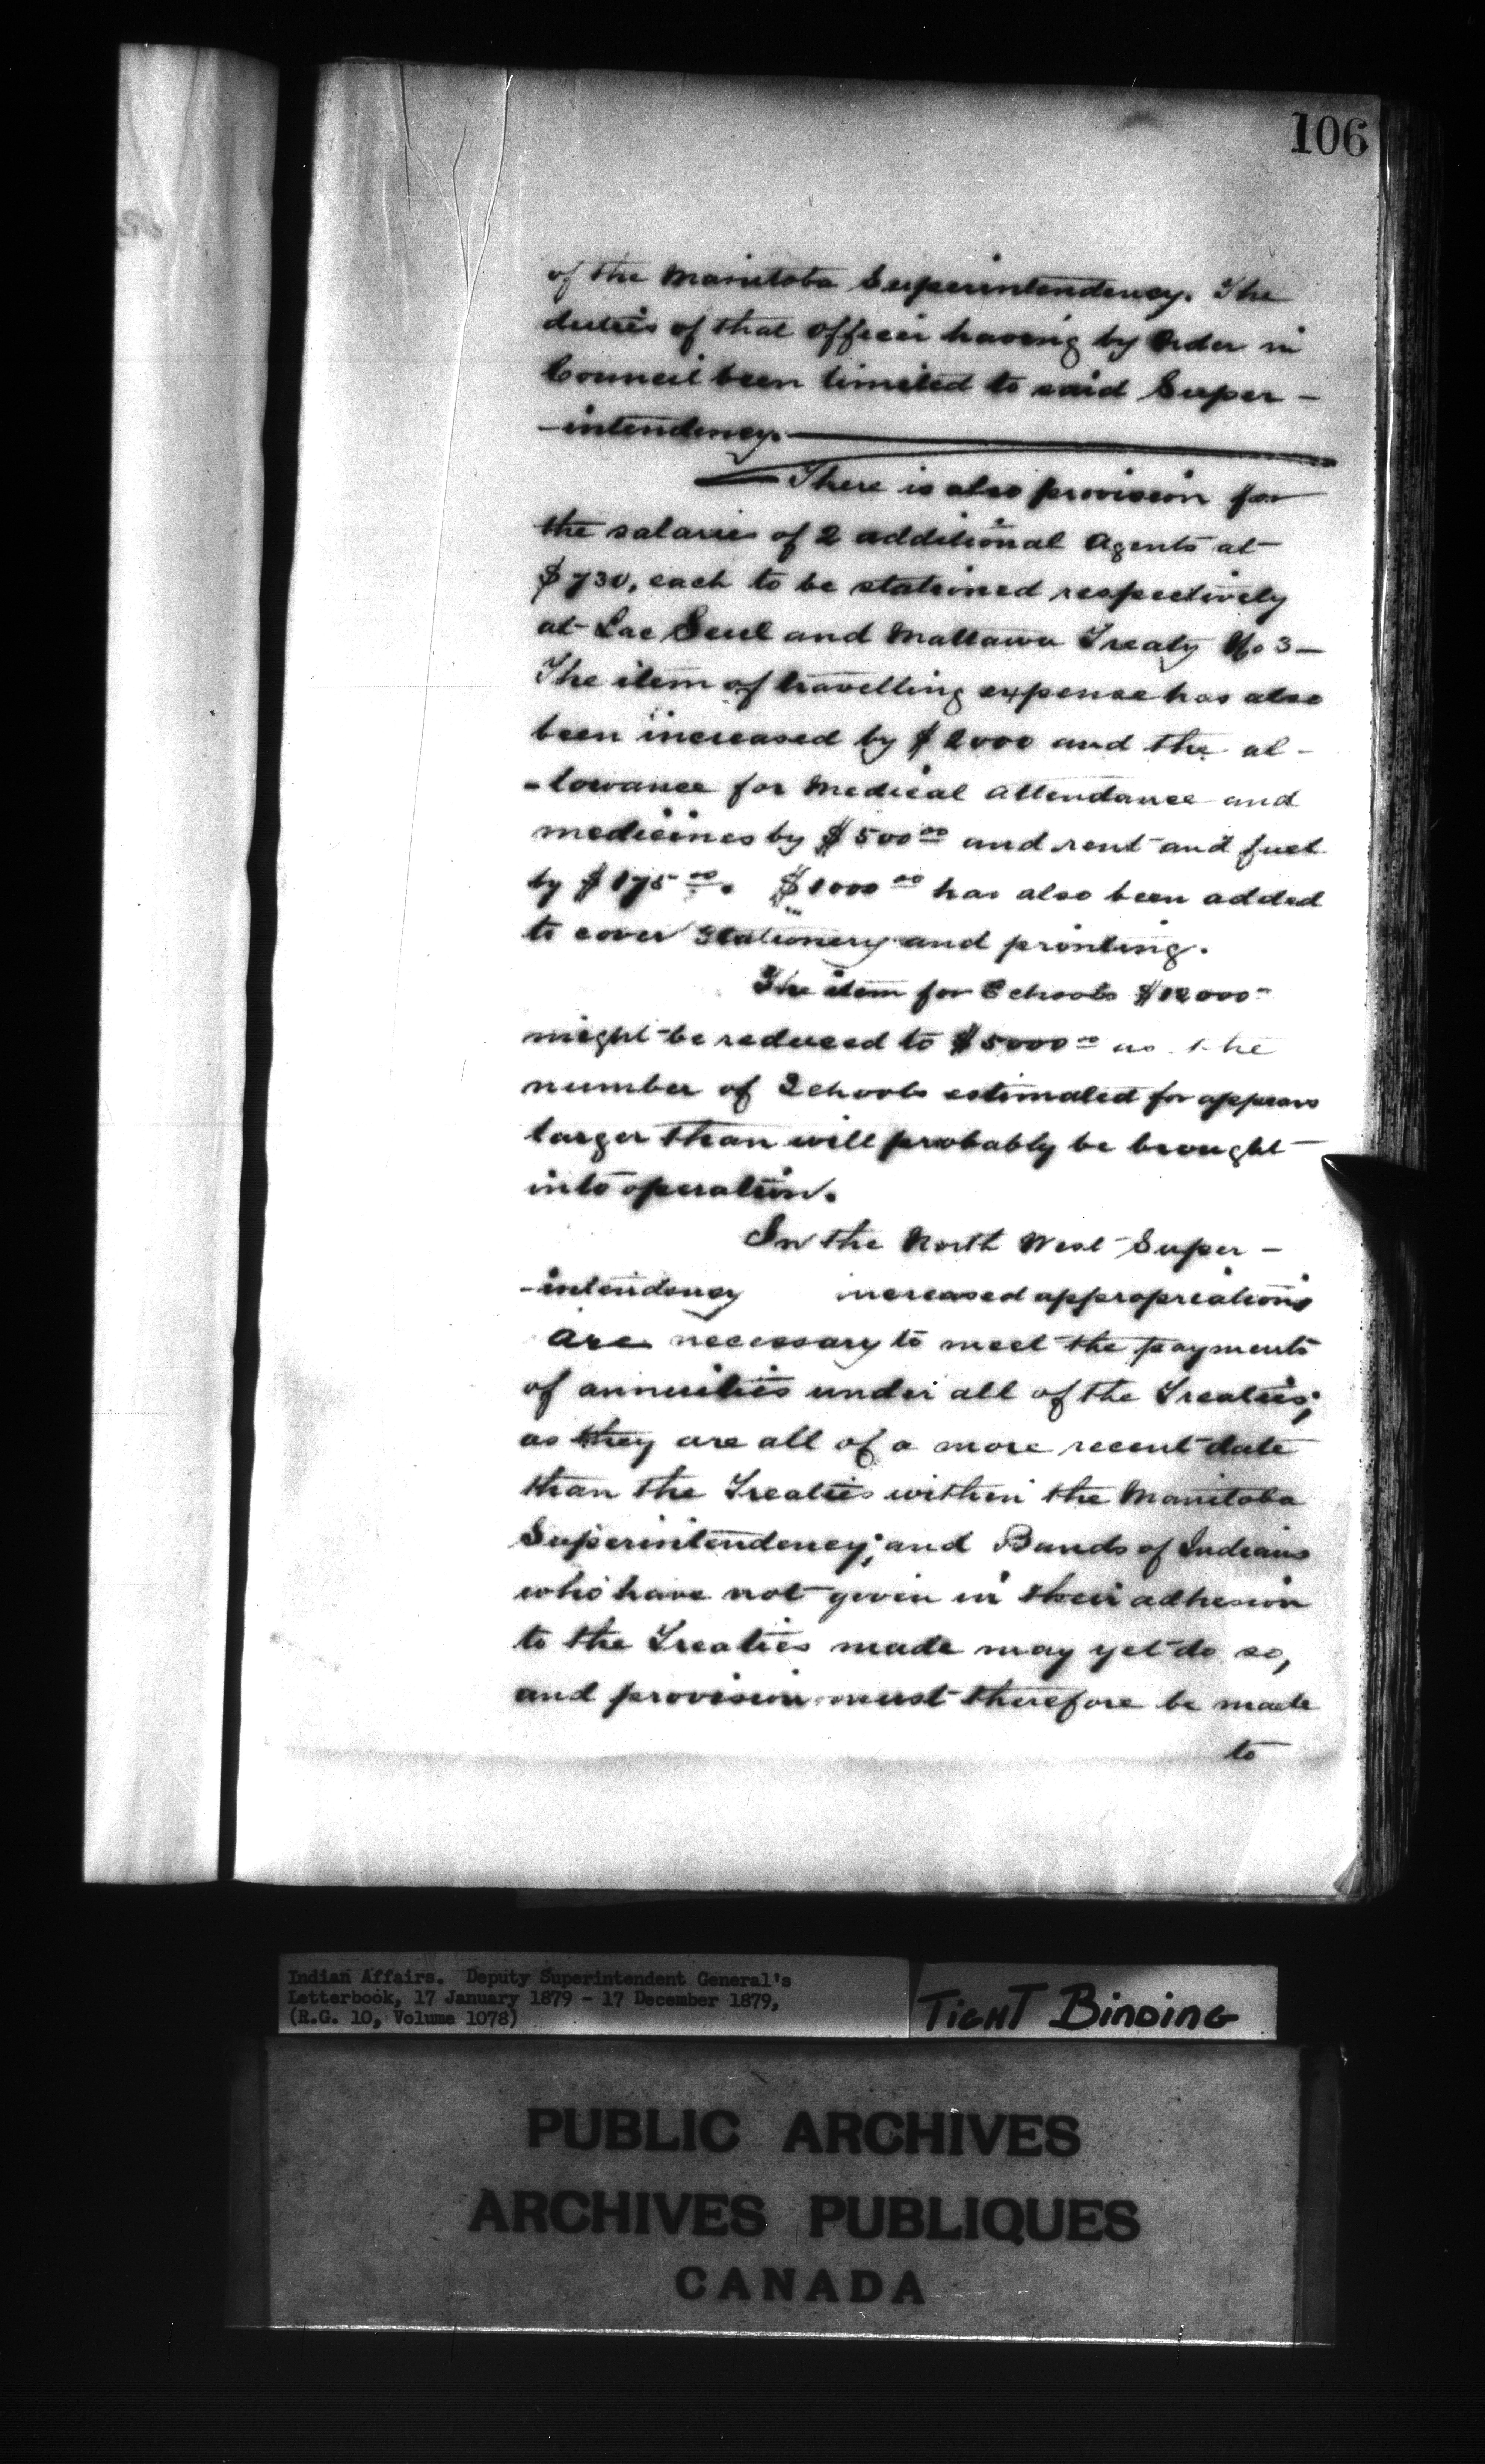 106
of the Manitoba Superintendency. The
duties of that Officer having by Order in
Council been limited to said Super-
-intendency.
There is also provision for
the salaries of 2 additional Agents at
$730, each to be stationed respectively
at Lac Seul and Mattawa Treaty No 3-
The item of travelling expense has also
been increased by $2000 and the al-
-lowance for Medical attendance and
medicines by $500 00 and rent and fuel
by $175 00. $1000 00 has also been added
to cover Stationery and printing.
The item for Schools $12000
might be reduced to $5000 00 as the
number of Schools estimated for appears
larger than will probably be brought
into operation.
In the North West Super-
-intendency increased appropriations
are necessary to meet the payments
of annuities under all of the Treaties;
as they are all of a more recent date
than the Treaties within the Manitoba
Superintendency; and Bands of Indians
who have not given in their adhesion
to the Treaties made may yet do so,
and provision must therefore be made
to
Indian Affairs. Deputy Superintendent General's
Letterbook, 17 January 1879 - 17 December 1879,
(R.G. 10, Volume 1078)
TIGHT BINDING
PUBLIC ARCHIVES
ARCHIVES PUBLIQUES
CANADA